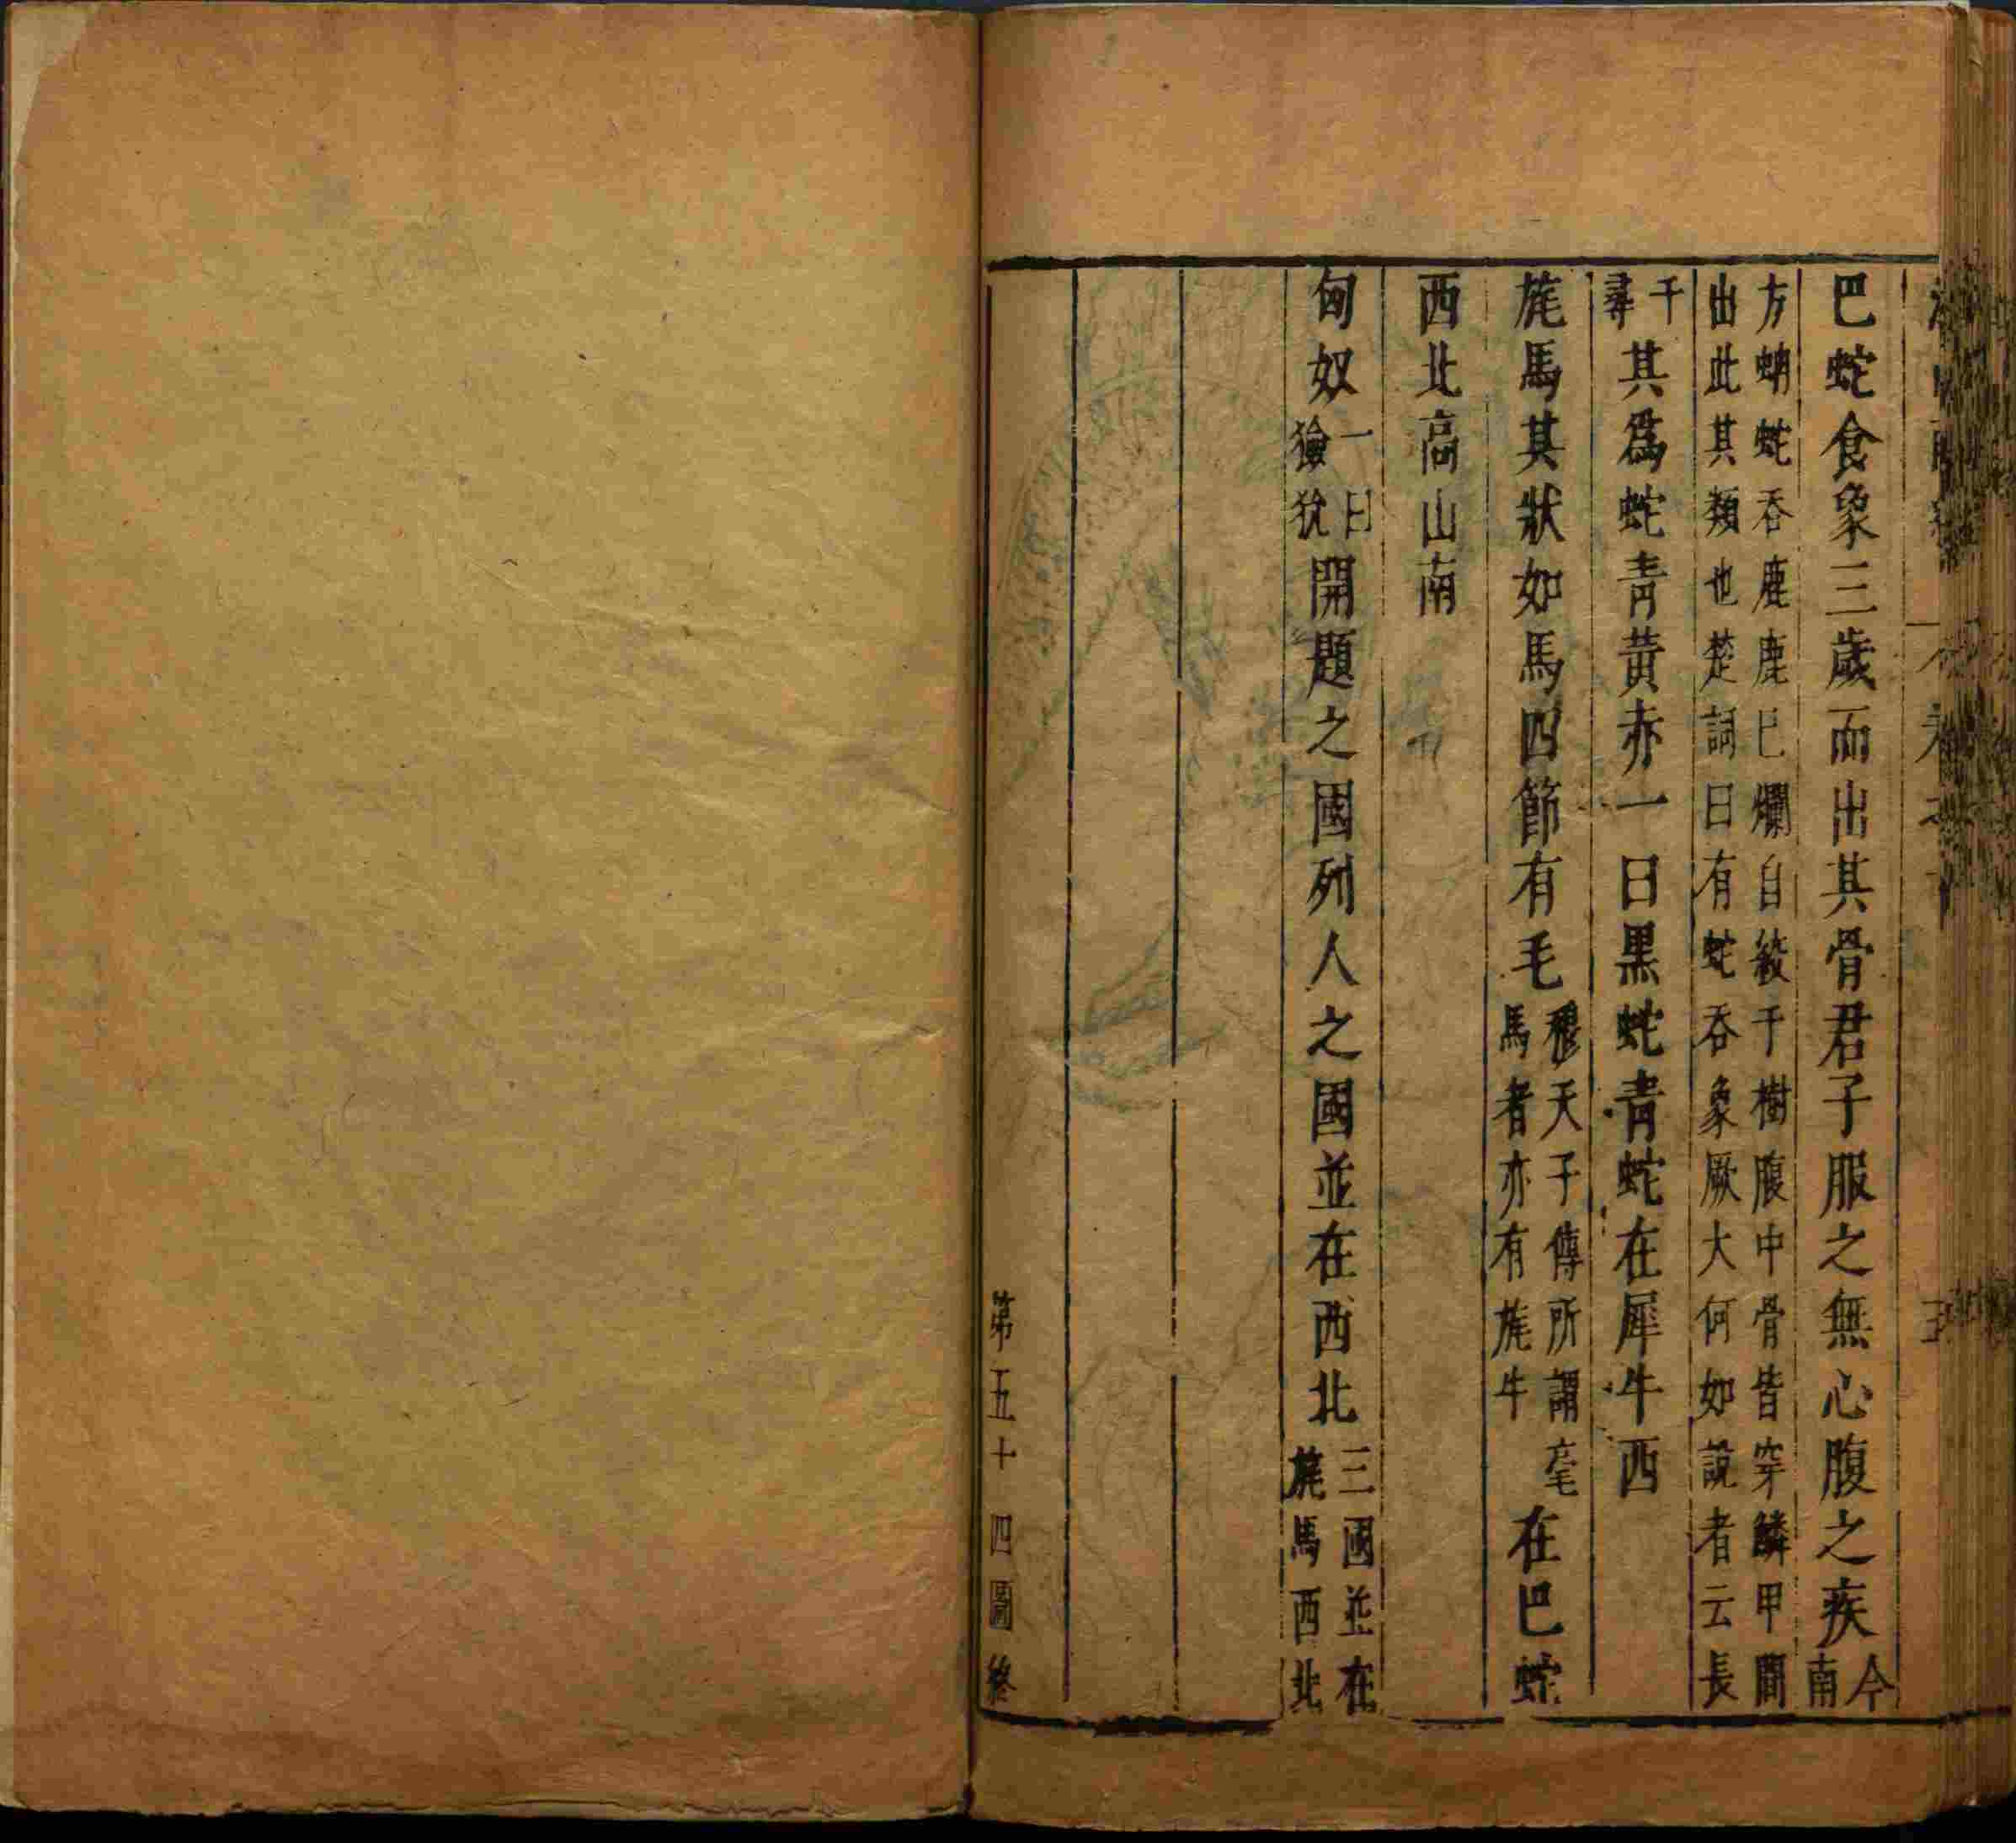 巴蛇食象三歲而出其骨君子服之無心腹之疾今南
方蚺蛇吞鹿鹿已爛自絞于樹腹中骨皆穿鱗甲間
出此其類也楚詞曰有蛇吞象厥大何如說者云長
千尋其為蛇青黃赤一曰黑蛇青蛇在犀牛西
旄馬其狀如馬四節有毛穆天子傳所謂髦馬者亦有旄牛在巴蛇
西北高山南
匈奴一曰獫狁開題之國列人之國並在西北三國並在旄馬西北
第五十四圖終